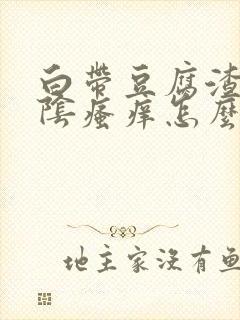 白帶豆腐渣
陰瘙痒怎麼
地主家没有鱼